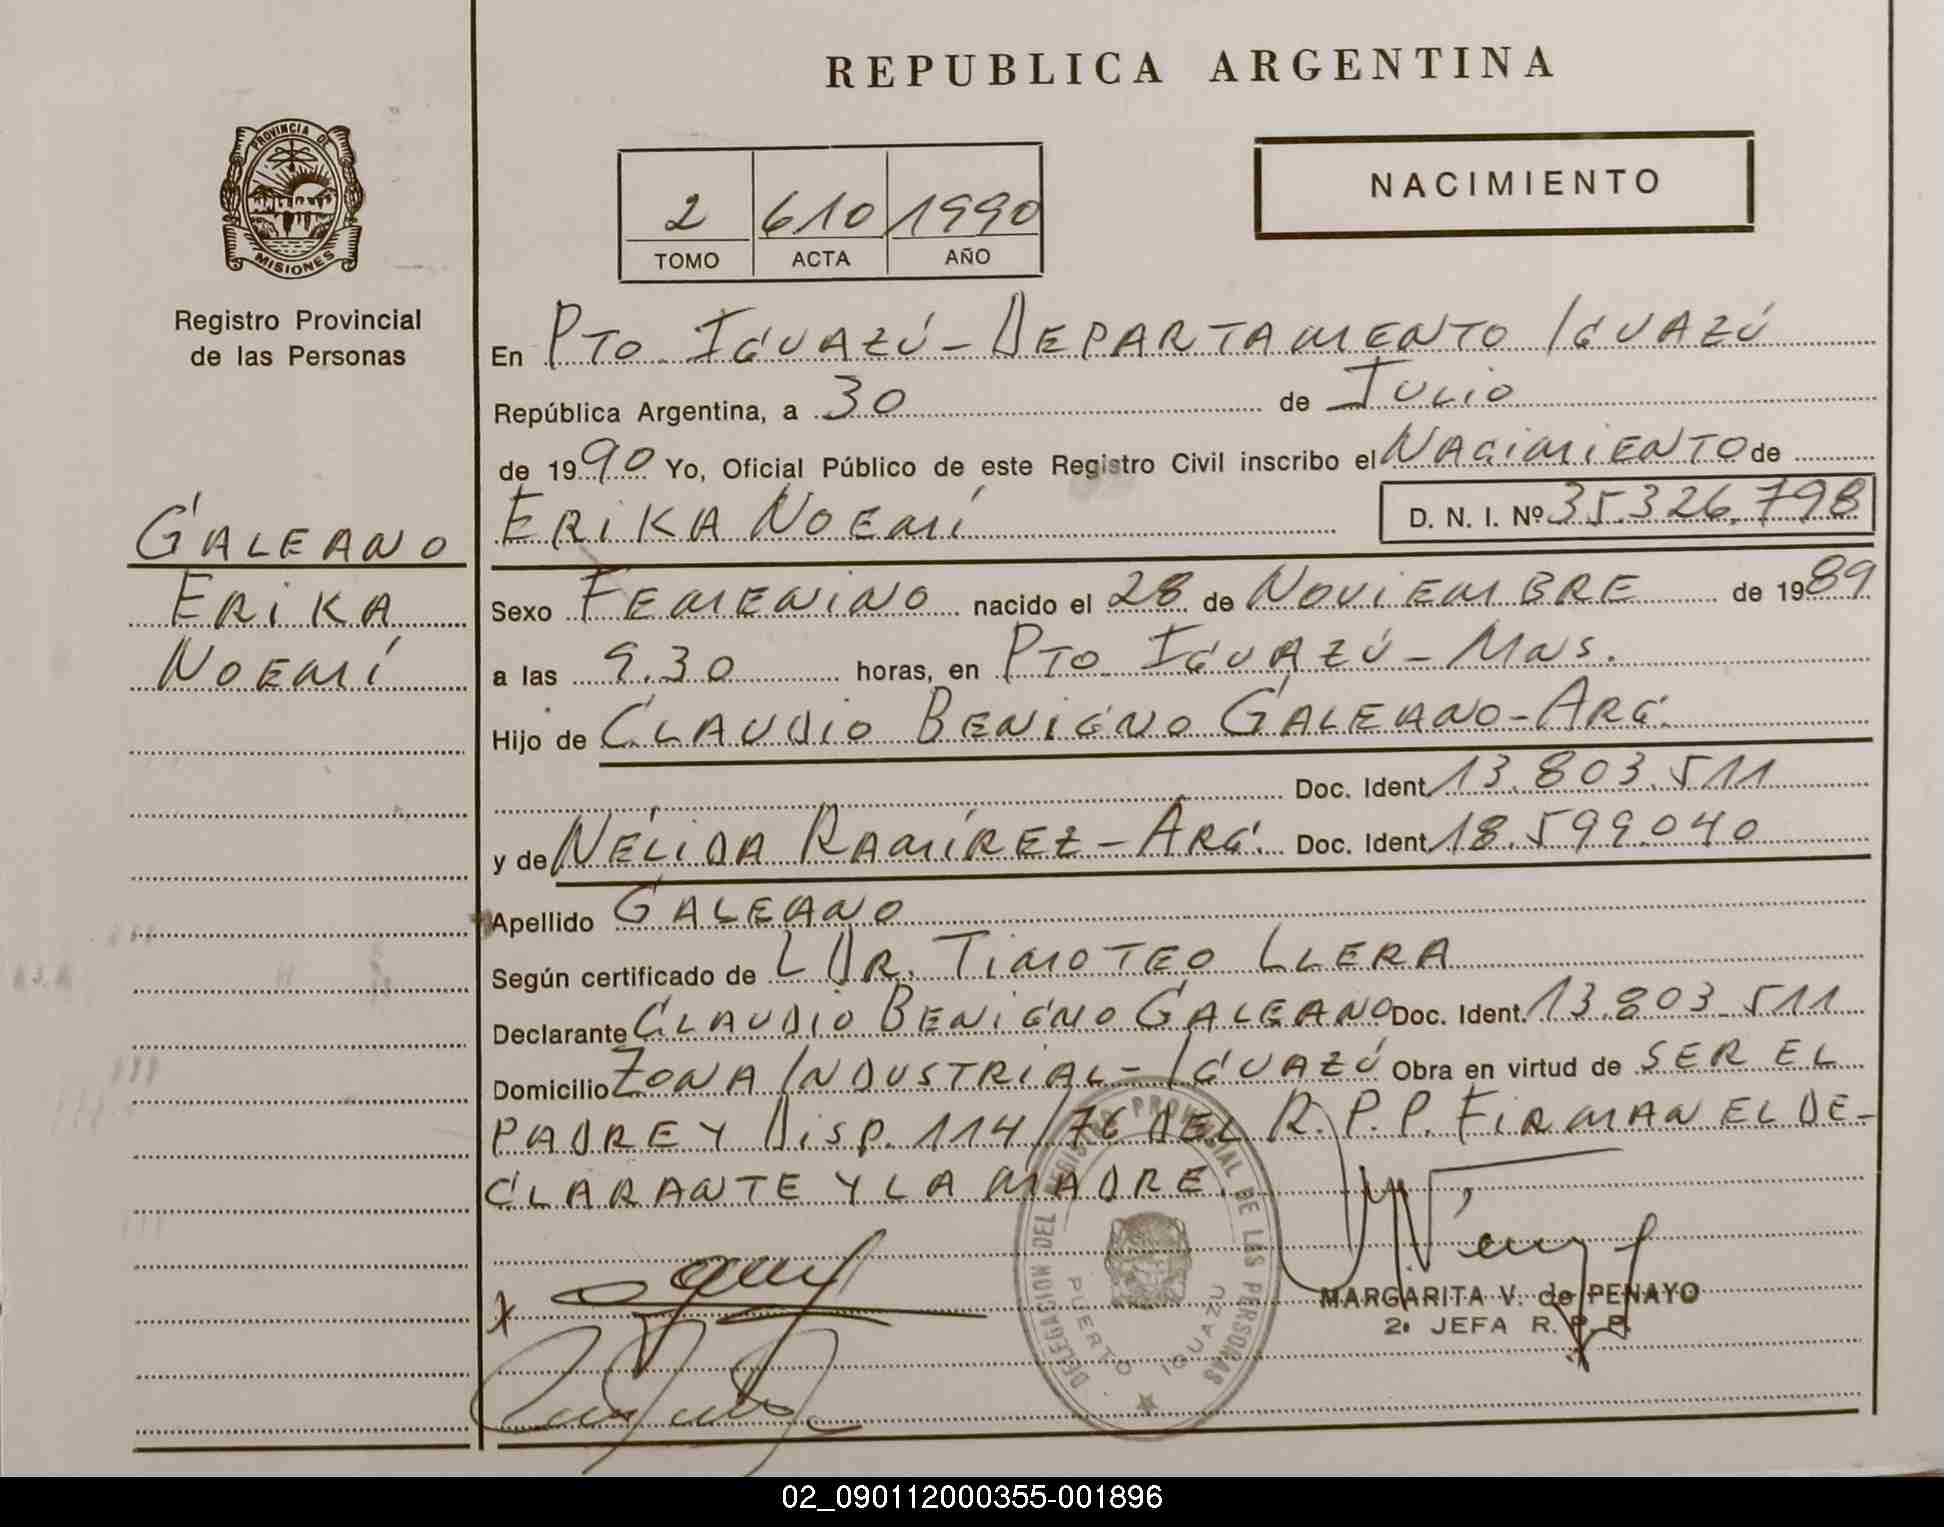 REPUBLICA ARGENTINA
PROVINCIA DE
MISIONES
NACIMIENTO
2 610 1990
TOMO ACTA AÑO
Registro Provincial
de las Personas
En PTO. IGUAZÚ - DEPARTAMENTO IGUAZÚ
República Argentina, a 30 de JULIO
de 1990 Yo, Oficial Público de este Registro Civil inscribo el NACIMIENTO de
ERIKA NOEMÍ D. N. I. Nº 35.326.798
GALEANO
ERIKA
NOEMÍ
Sexo FEMENINO nacido el 28 de NOVIEMBRE de 1989
a las 9.30 horas, en PTO. IGUAZÚ - MNS.
Hijo de CLAUDIO BENIGNO GALEANO - ARG.
Doc. Ident. 13.803.511
y de NÉLIDA RAMÍREZ - ARG. Doc. Ident. 18.599.040
Apellido GALEANO
Según certificado de L DR. TIMOTEO LLERA
Declarante CLAUDIO BENIGNO GALEANO Doc. Ident. 13.803.511
Domicilio ZONA INDUSTRIAL - IGUAZÚ Obra en virtud de SER EL
PADRE Y DISP. 114/76 DEL R.P.P. FIRMAN EL DE-
CLARANTE Y LA MADRE.
DELEGACION DEL REGISTRO PROVINCIAL DE LAS PERSONAS
PUERTO IGUAZU
X
MARGARITA V. de PENAYO
2ª JEFA R. P. P.
02_090112000355-001896